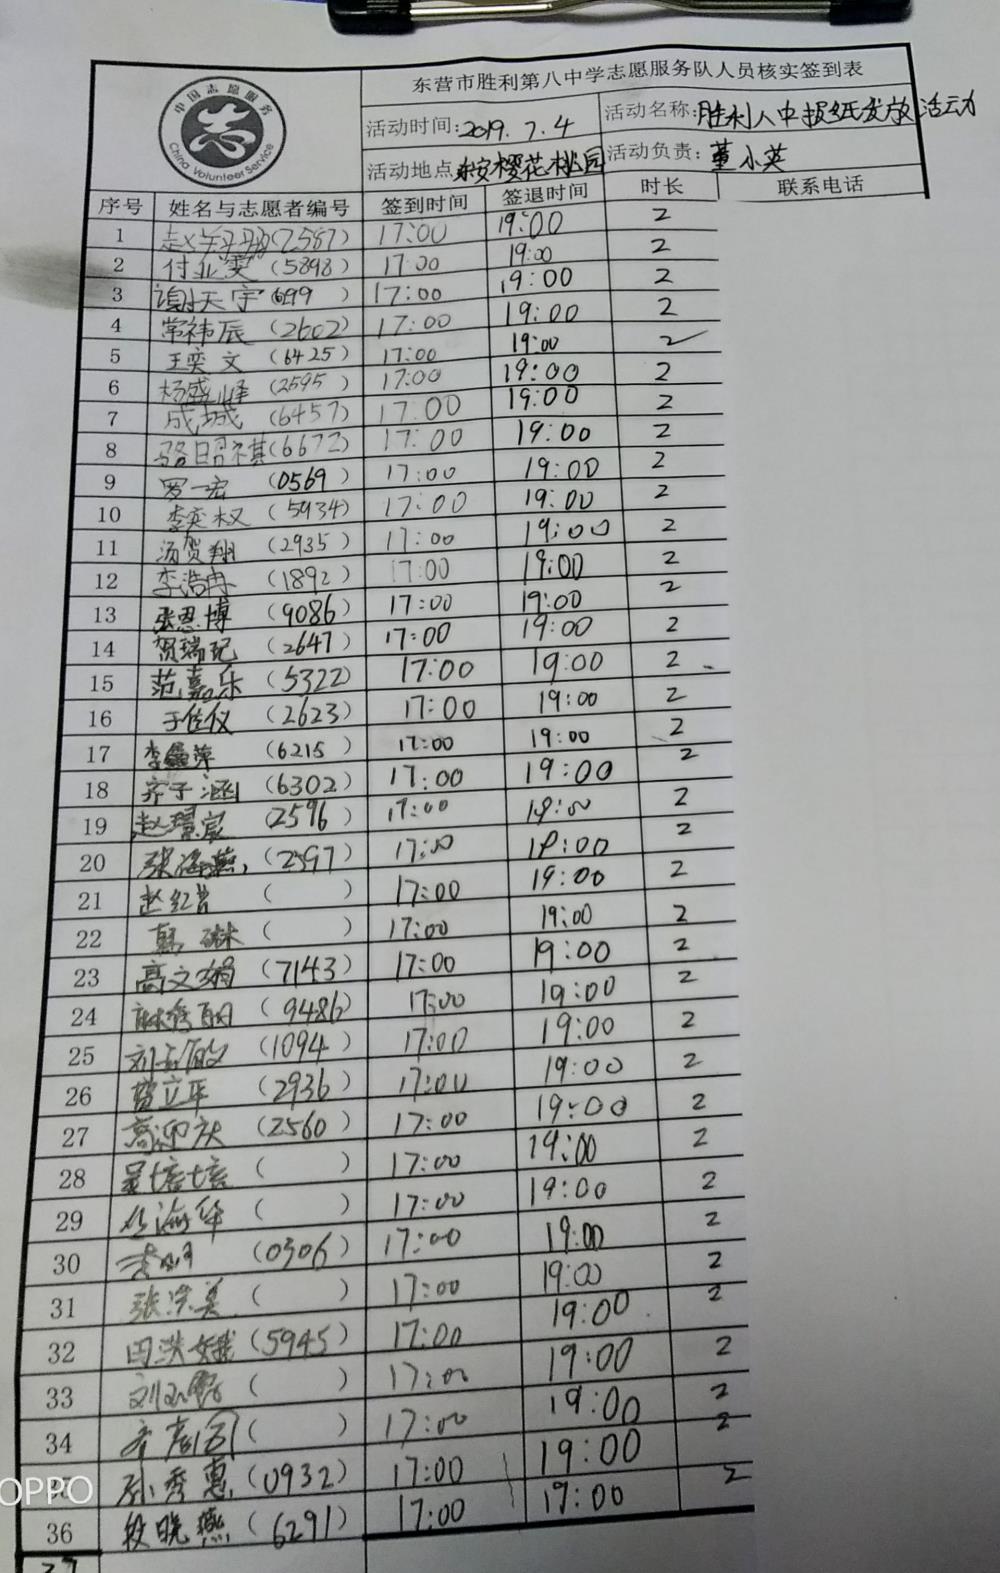 中国志愿服务
志
China Volunteer Service
东营市胜利第八中学志愿服务队人员核实签到表
活动时间:2019.7.4 活动名称:胜利八中报纸发放活动
活动地点 东安樱花桃园 活动负责:董小英
序号 姓名与志愿者编号 签到时间 签退时间 时长 联系电话
1 (7587) 17:00 19:00 2
2 付业雯 (5898) 17:00 19:00 2
3 谢天宇 (699 ) 17:00 19:00 2
4 常祎辰 (2602) 17:00 19:00 2
5 王奕文 (6425) 17:00 19:00 2
6 杨盛峰 (2595) 17:00 19:00 2
7 成城 (6457) 17:00 19:00 2
8 骆昭祺 (6672) 17:00 19:00 2
9 罗一宏 (0569) 17:00 19:00 2
10 李奕权 (5934) 17:00 19:00 2
11 汤贺翔 (2935) 17:00 19:00 2
12 李浩冉 (1892) 17:00 19:00 2
13 张恩博 (9086) 17:00 19:00 2
14 贺瑞圮 (2647) 17:00 19:00 2
15 范嘉乐 (5322) 17:00 19:00 2
16 于佳仪 (2623) 17:00 19:00 2
17 李鑫萍 (6215) 17:00 19:00 2
18 齐子涵 (6302) 17:00 19:00 2
19 赵璟宸 (2596) 17:00 19:00 2
20 张海燕 (2597) 17:00 19:00 2
21 赵红岩 ( ) 17:00 19:00 2
22 韩琳 ( ) 17:00 19:00 2
23 高文娟 (7143) 17:00 19:00 2
24 麻秀丽 (9486) 17:00 19:00 2
25 (1094) 17:00 19:00 2
26 曹立平 (2936) 17:00 19:00 2
27 高迎庆 (2560) 17:00 19:00 2
28 吴培培 ( ) 17:00 19:00 2
29 海华 ( ) 17:00 19:00 2
30 李明 (0306) 17:00 19:00 2
31 张宗美 ( ) 17:00 19:00 2
32 田洪娥 (5945) 17:00 19:00 2
33 刘 ( ) 17:00 19:00 2
34 齐彦 ( ) 17:00 19:00 2
孙秀惠 (0932) 17:00 19:00 2
36 段晓燕 (6291) 17:00 19:00 2
OPPO